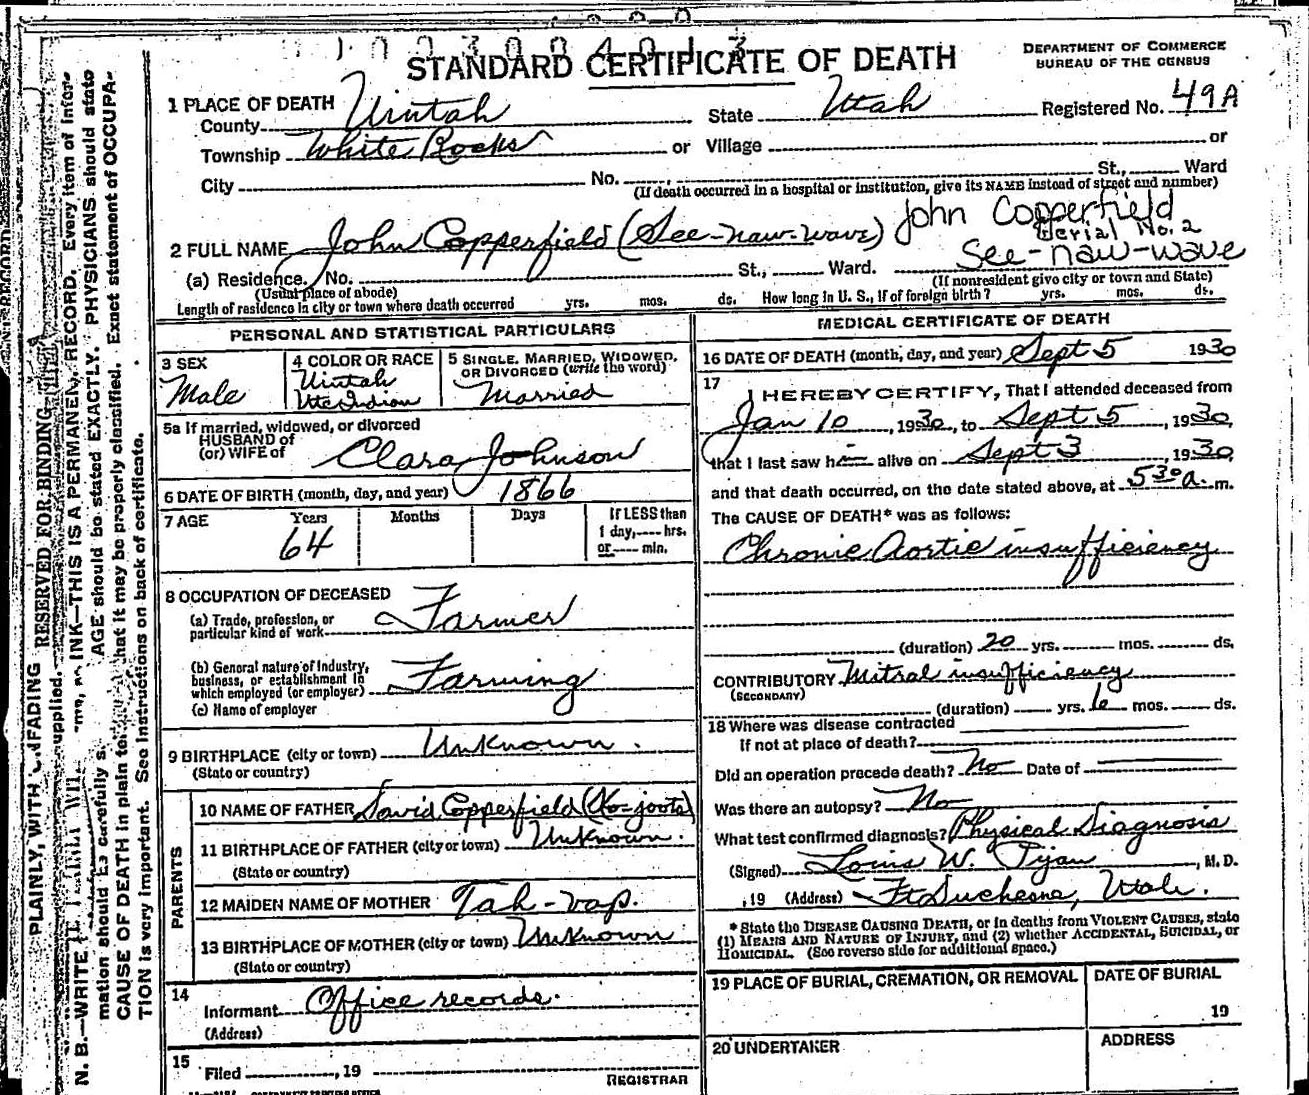 STANDARD CERTIFICATE OF DEATH
DEPARTMENT OF COMMERCE
BUREAU OF THE CENSUS
1 PLACE OF DEATH
County Uintah State Utah Registered No. 49A
Township White Rocks or Village or
City No. St., Ward
(If death occurred in a hospital or institution, give its NAME instead of street and number)
2 FULL NAME John Copperfield (See-naw-wave) John Copperfield
Serial No. 2
See-naw-wave
(a) Residence. No. St., Ward.
(Usual place of abode) (If nonresident give city or town and State)
Length of residence in city or town where death occurred yrs. mos. ds. How long in U. S., if of foreign birth? yrs. mos. ds.
PERSONAL AND STATISTICAL PARTICULARS
3 SEX
Male
4 COLOR OR RACE
Uintah
Ute Indian
5 SINGLE, MARRIED, WIDOWED,
OR DIVORCED (write the word)
Married
5a If married, widowed, or divorced
HUSBAND of
(or) WIFE of Clara Johnson
6 DATE OF BIRTH (month, day, and year) 1866
7 AGE Years Months Days If LESS than
64 1 day, hrs.
or min.
8 OCCUPATION OF DECEASED
(a) Trade, profession, or
particular kind of work Farmer
(b) General nature of industry,
business, or establishment in
which employed (or employer) Farming
(c) Name of employer
9 BIRTHPLACE (city or town) Unknown.
(State or country)
PARENTS
10 NAME OF FATHER David Copperfield (Ko-joots)
11 BIRTHPLACE OF FATHER (city or town) Unknown.
(State or country)
12 MAIDEN NAME OF MOTHER Tah-vap.
13 BIRTHPLACE OF MOTHER (city or town) Unknown
(State or country)
14
Informant Office records.
(Address)
15
Filed , 19
REGISTRAR
MEDICAL CERTIFICATE OF DEATH
16 DATE OF DEATH (month, day, and year) Sept 5 1930
17
I HEREBY CERTIFY, That I attended deceased from
Jan 10, 1930, to Sept 5, 1930,
that I last saw him alive on Sept 3, 1930,
and that death occurred, on the date stated above, at 5 30 a. m.
The CAUSE OF DEATH* was as follows:
Chronic Aortic insufficiency
(duration) 20 yrs. mos. ds.
CONTRIBUTORY Mitral insufficiency
(SECONDARY)
(duration) yrs. 6 mos. ds.
18 Where was disease contracted
If not at place of death?
Did an operation precede death? No Date of
Was there an autopsy? No
What test confirmed diagnosis? Physical Diagnosis
(Signed) Louis W. Tyan, M. D.
, 19 (Address) Ft Duchesne, Utah.
* State the DISEASE CAUSING DEATH, or in deaths from VIOLENT CAUSES, state
(1) MEANS AND NATURE OF INJURY, and (2) whether ACCIDENTAL, SUICIDAL, or
HOMICIDAL. (See reverse side for additional space.)
19 PLACE OF BURIAL, CREMATION, OR REMOVAL
DATE OF BURIAL
19
20 UNDERTAKER
ADDRESS
RESERVED FOR BINDING
PLAINLY, WITH UNFADING INK—THIS IS A PERMANENT RECORD. Every item of infor-
mation should be carefully supplied. AGE should be stated EXACTLY. PHYSICIANS should state
CAUSE OF DEATH in plain that it may be properly classified. Exact statement of OCCUPA-
TION is very important. See instructions on back of certificate.
N. B.—WRITE